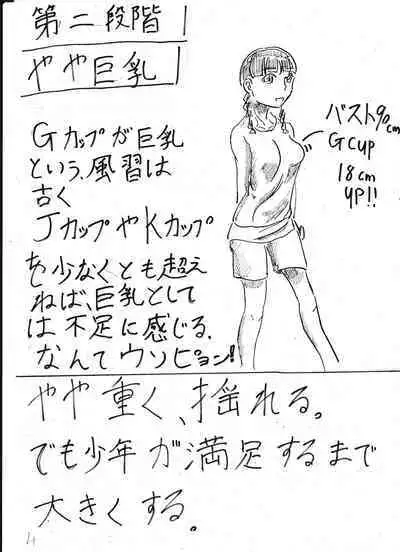 第二段階
やや巨乳
Gカップが巨乳
という、風習は
古く
JカップやKカップ
を少なくとも超え
ねば、巨乳として
は不足に感じる、
なんてウソピョン!
バスト90cm
Gcup
18cm
UP!!
やや重く、揺れる。
でも少年が満足するまで
大きくする。
4